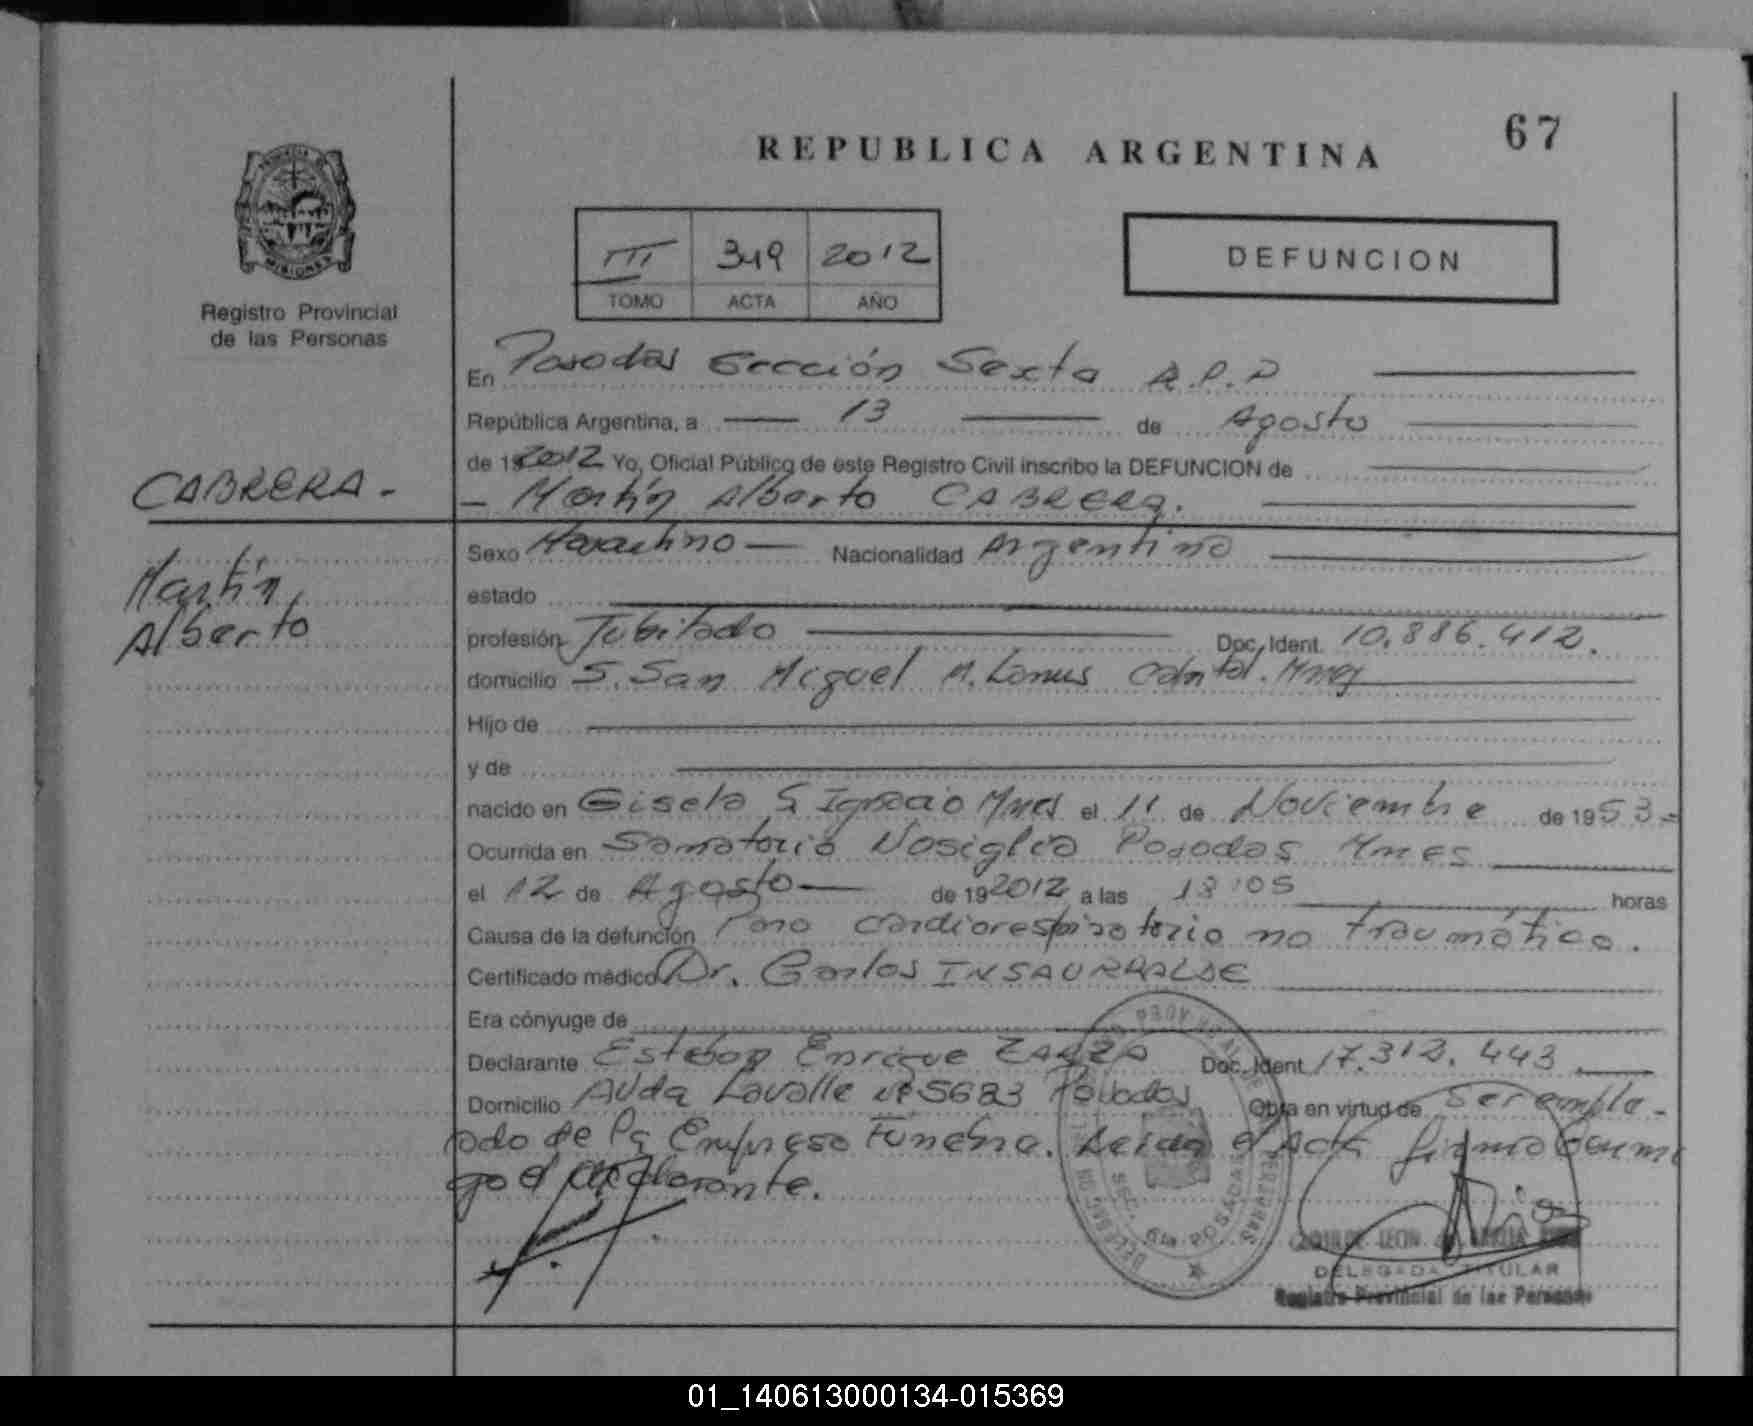 67
REPUBLICA ARGENTINA
PROVINCIA DE
MISIONES
Registro Provincial
de las Personas
III 349 2012
TOMO ACTA AÑO
DEFUNCION
En Posadas Sección Sexta R.P.P
República Argentina, a 13 de Agosto
de 192012 Yo, Oficial Público de este Registro Civil inscribo la DEFUNCION de
CABRERA -
- Martín Alberto CABRERA.
Martín
Alberto
Sexo Masculino Nacionalidad Argentino
estado
profesión Jubilado Doc. Ident. 10.886.412.
domicilio S. San Miguel M. Lanus Mnes
Hijo de
y de
nacido en Gisela S. Ignacio Mnes el 11 de Noviembre de 1953-
Ocurrida en Sanatorio Nosiglia Posadas Mnes
el 12 de Agosto de 192012 a las 18:05 horas
Causa de la defunción Paro cardiorespiratorio no traumático.
Certificado médico Dr. Carlos INSAURRALDE
Era cónyuge de
Declarante Esteban Enrique ZARZA Doc. Ident. 17.312.443
Domicilio Avda Lavalle Nº 5683 Posadas Obra en virtud de Ser emplea-
ado de la Empresa Funebre. Leida el Acta firma conmi
go el declarante.
SEC. 6ta POSADAS
DELEGADA TITULAR
Registro Provincial de las Personas
01_140613000134-015369